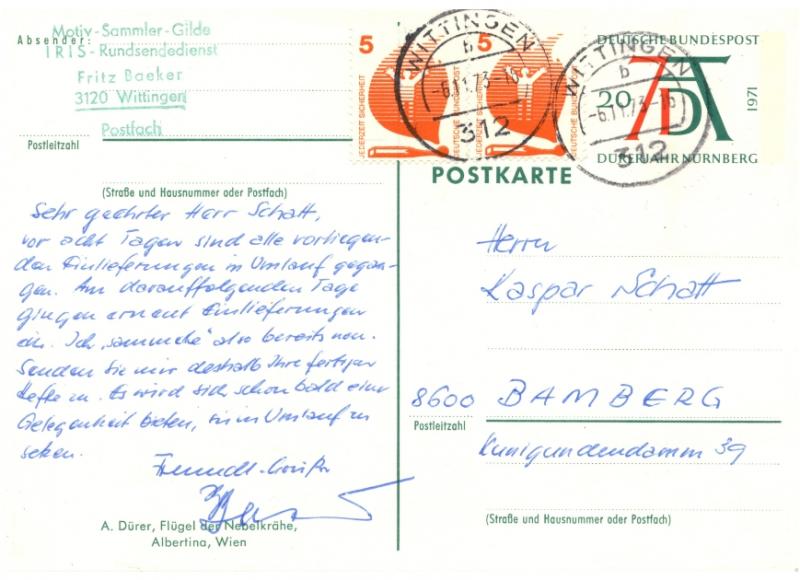 Motiv-Sammler-Gilde
Absender:
IRIS-Rundsendedienst
Fritz Baeker
3120 Wittingen
Postfach
Postleitzahl
(Straße und Hausnummer oder Postfach)
Sehr geehrter Herr Schatt,
vor acht Tagen sind alle vorliegen-
den Einlieferungen in Umlauf gegan-
gen. Am darauffolgenden Tage
gingen erneut Einlieferungen
ein. Ich „sammele“ also bereits neu.
Senden Sie mir deshalb Ihre fertigen
Hefte zu. Es wird sich schon bald eine
Gelegenheit bieten, sie in Umlauf zu
setzen.
Freundl. Grüße
A. Dürer, Flügel der Nebelkrähe,
Albertina, Wien
5
JEDERZEIT SICHERHEIT
DEUTSCHE BUNDESPOST
5
JEDERZEIT SICHERHEIT
DEUTSCHE BUNDESPOST
WITTINGEN
b
-6.11.73-16
312
WITTINGEN
b
-6.11.73-16
312
DEUTSCHE BUNDESPOST
20
AD
71
1971
DÜRERJAHR NÜRNBERG
POSTKARTE
Herrn
Kaspar Schatt
8600 BAMBERG
Postleitzahl
Kunigundendamm 39
(Straße und Hausnummer oder Postfach)